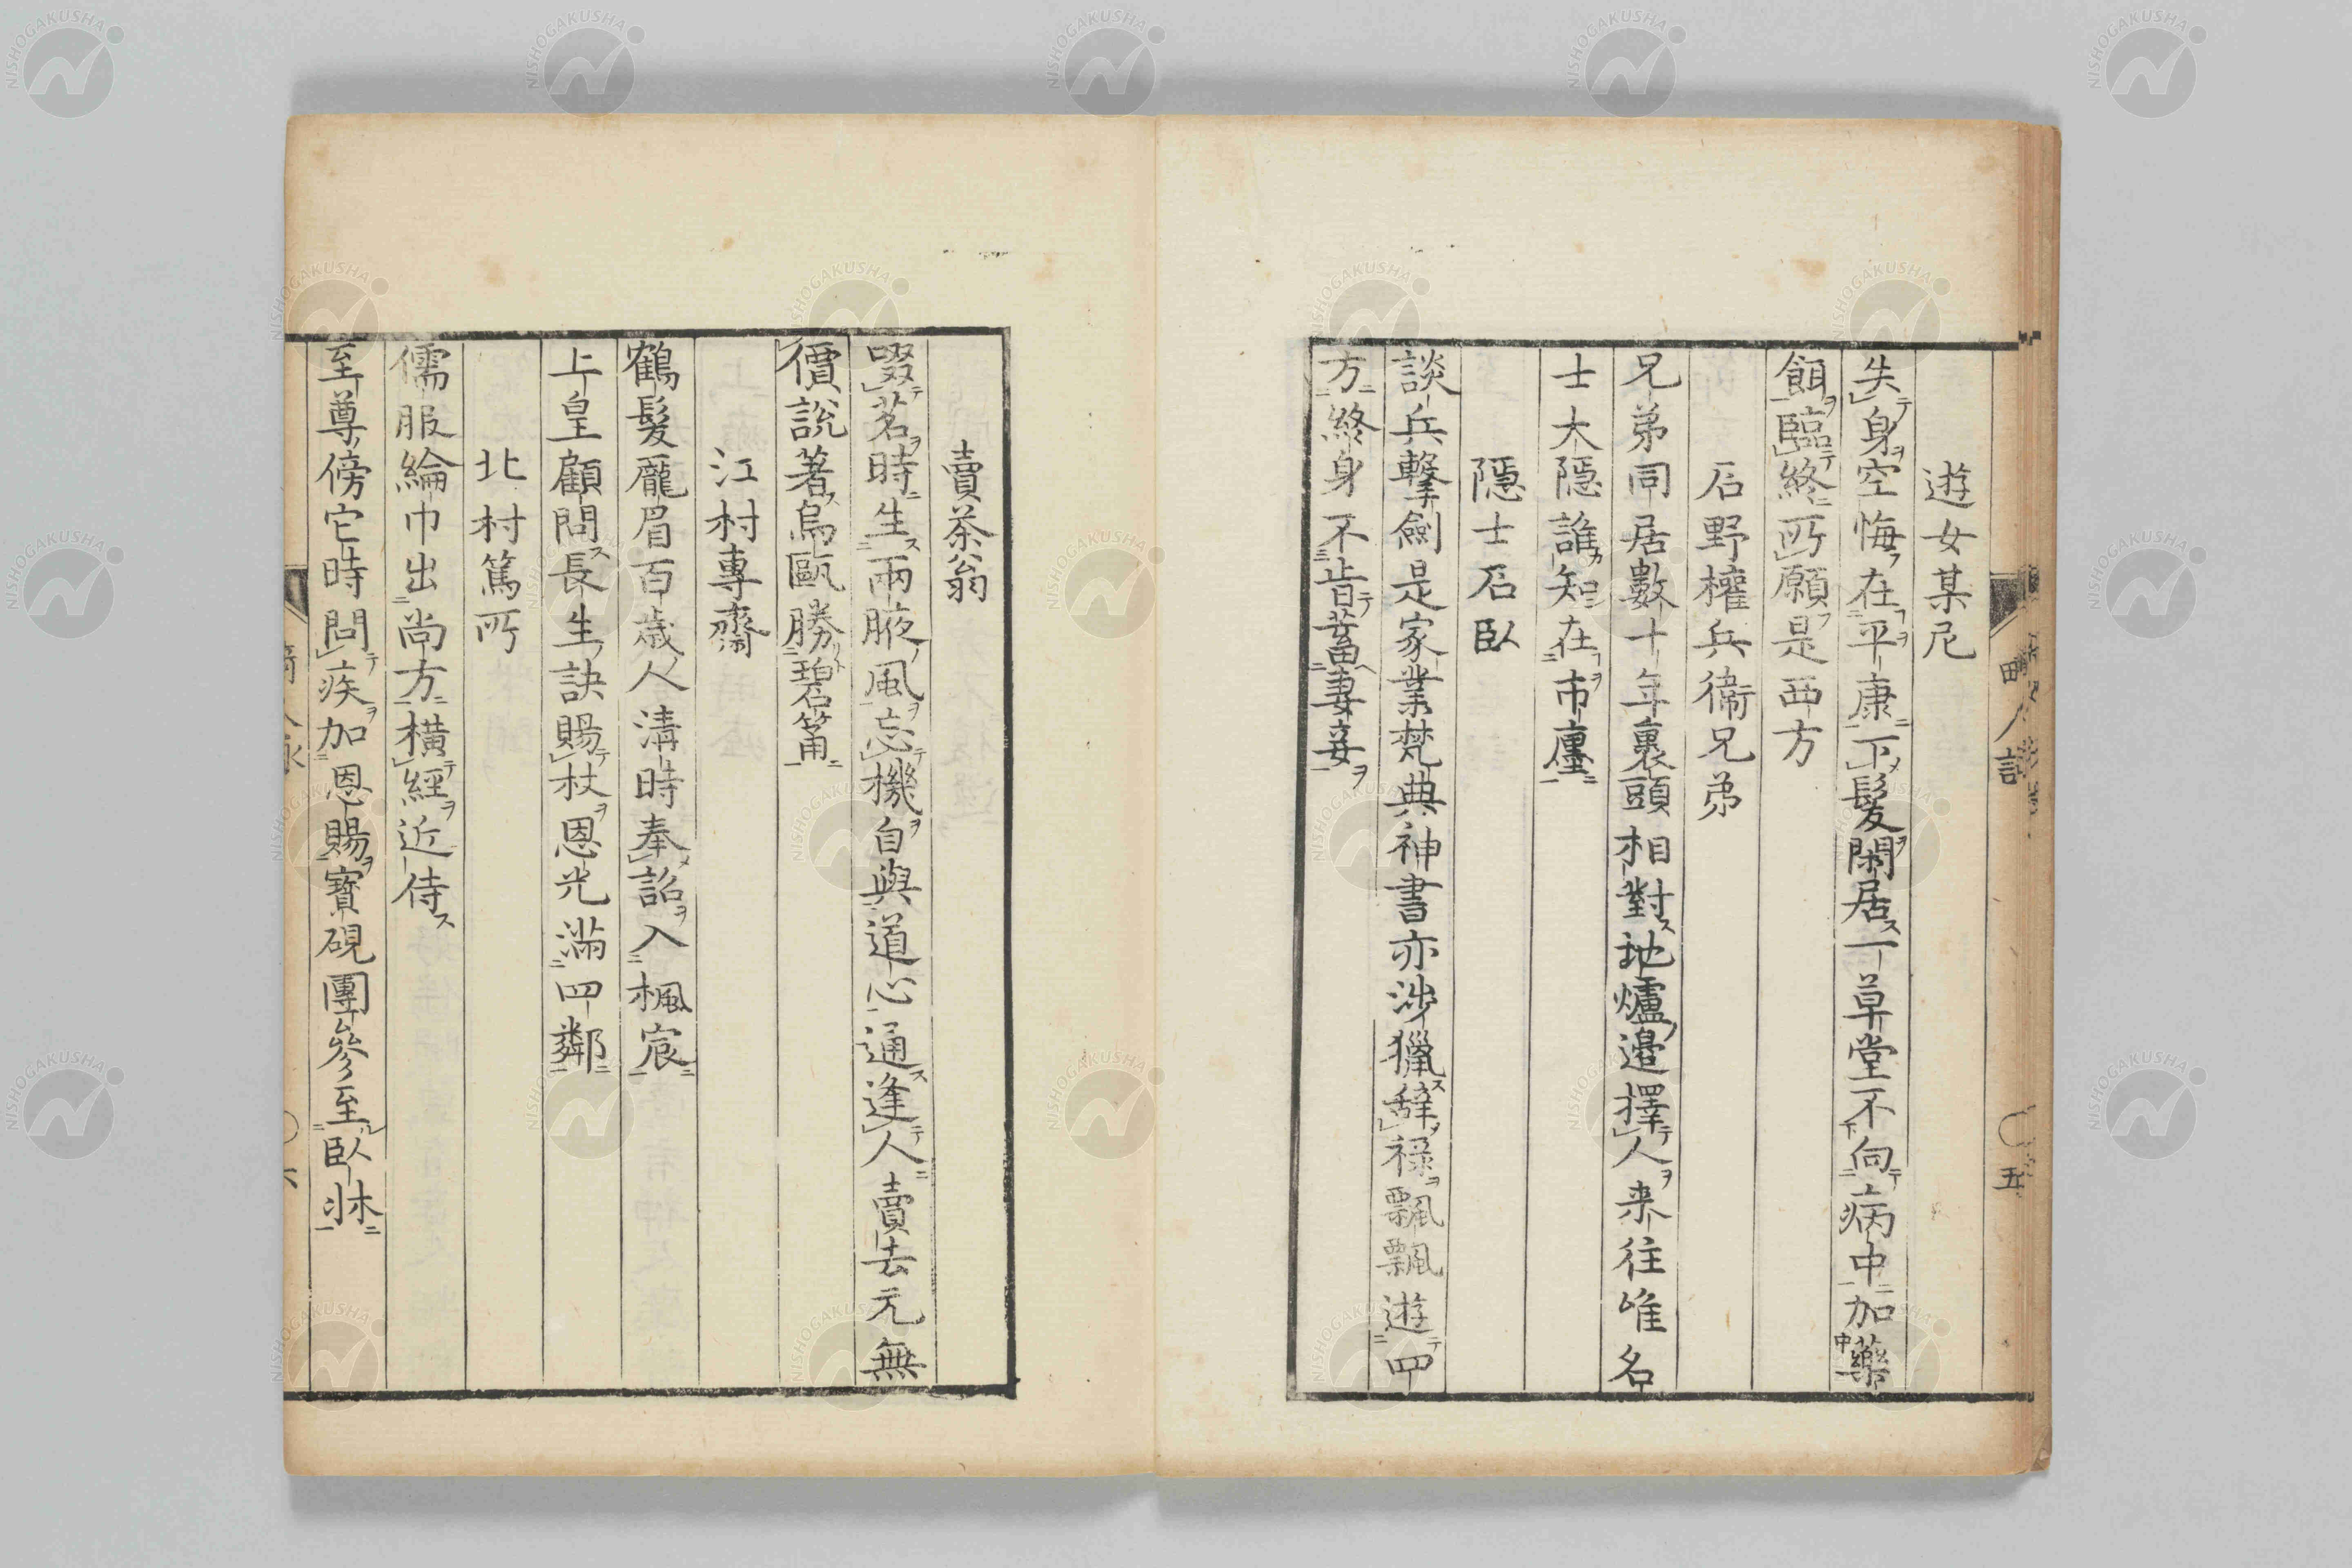 遊女某尼
失身空悔在平康下髮閑居一草堂不向病中加藥
餌臨終所願是西方
石野權兵衞兄弟
兄弟同居數十年裹頭相對地爐邊擇人来往唯名
士大隱誰知在市廛
隱士石臥
談兵擊劍是家業梵典神書亦涉獵辭祿飄飄遊四
方終身不肯蓄妻妾
賣茶翁
啜茗時生兩腋風忘機自與道心通逢人賣去元無
價說著烏甌勝碧筩
江村專齋
鶴髮龐眉百歲人清時奉詔入楓宸
上皇顧問長生訣賜杖恩光滿四鄰
北村篤所
儒服綸巾出尚方橫經近侍
至尊傍它時問疾加恩賜寶硯團參至臥牀